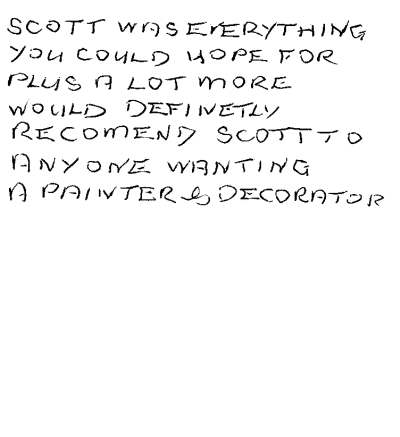 SCOTT WAS EVERYTHING
YOU COULD HOPE FOR
PLUS A LOT MORE
WOULD DEFINETLY
RECOMEND SCOTT TO
ANYONE WANTING
A PAINTER & DECORATOR